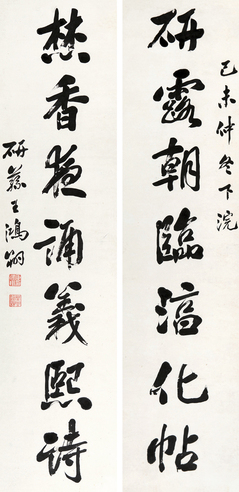 己未仲冬下浣
研露朝臨湻化帖
焚香夜誦義熙詩
研蓀王鴻